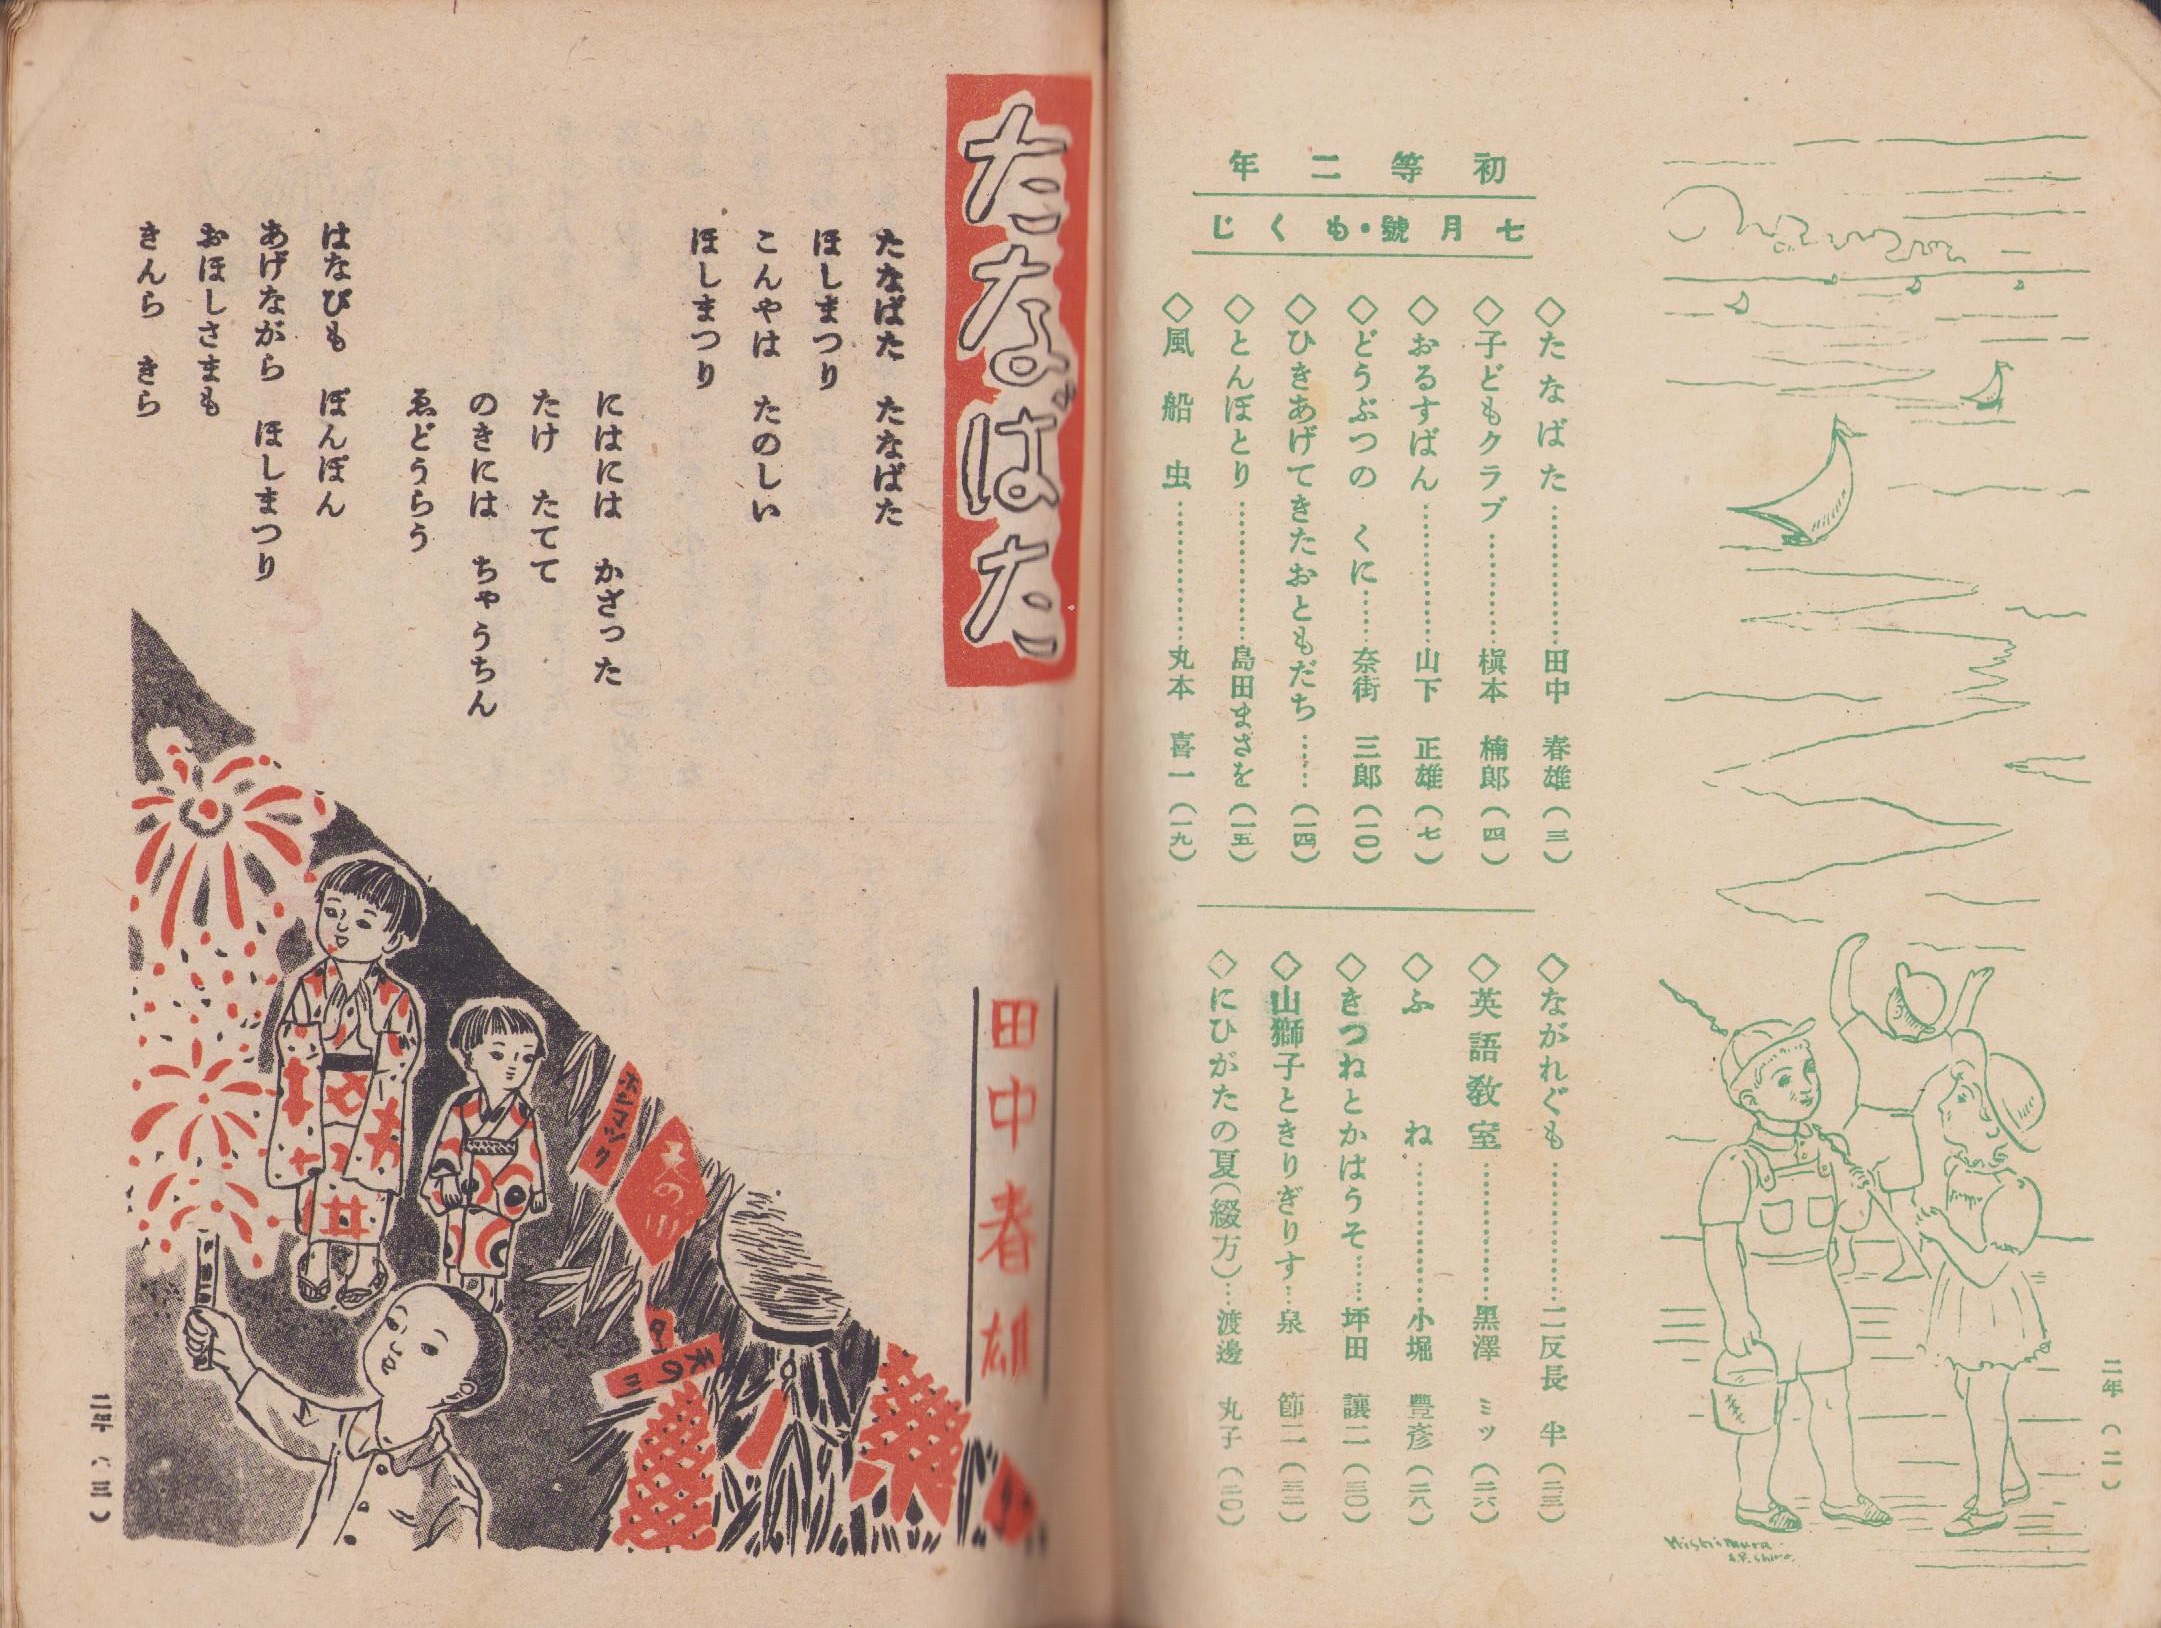 初等二年
七月號・もくじ
◇たなばた…………田中 春雄(三)
◇子どもクラブ…………槇本 楠郎(四)
◇おるすばん…………山下 正雄(七)
◇どうぶつの くに……奈街 三郎(一〇)
◇ひきあげてきたおともだち……(一四)
◇とんぼとり…………島田まさを(一五)
◇風船虫…………丸本 喜一(一九)
◇ながれぐも…………二反長 半(二三)
◇英語教室…………黒澤 ミツ(二六)
◇ふね…………小堀 豊彦(二八)
◇きつねとかはうそ……坪田 讓二(三〇)
◇山獅子ときりぎりす…泉 節二(三二)
◇にひがたの夏(綴方)…渡邊 丸子(二〇)
Nishimura
二年(二)
たなばた
田中春雄
たなばた たなばた
ほしまつり
こんやは たのしい
ほしまつり
にはには かざった
たけ たてて
のきには ちゃうちん
ゑどうらう
はなびも ぽんぽん
あげながら ほしまつり
おほしさまも
きんら きら
ホシマツリ
天の川
天の川
二年(三)